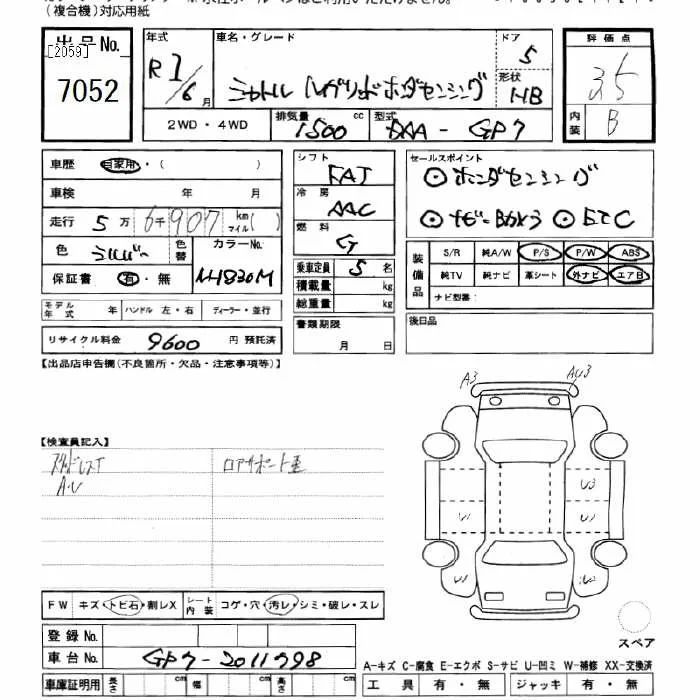 (複合機)対応用紙
出品No.
[2059]
7052
年式 車名・グレード ドア 5
R1/6月 シャトル ハイブリッド ホンダセンシング 形状 HB
2WD・4WD 排気量 1500 cc 型式 DAA-GP7
評価点
3.5
内装 B
車歴 自家用・( )
車検 年 月
走行 5万6千907 km マイル( )
色 シルバー 色替 カラーNo.
保証書 有・無 NH830M
モデル年式 年 ハンドル 左・右 ディーラー・並行
リサイクル料金 9600 円 預託済
シフト FAT
冷房 AAC
燃料 G
乗車定員 5 名
積載量 kg
総重量 kg
書類期限
月 日
セールスポイント
◎ホンダセンシング
◎ナビ・Bカメラ ◎ETC
装備品 S/R 純A/W P/S P/W ABS
純TV 純ナビ 革シート 外ナビ エアB
ナビ型番:
後日品
【出品店申告欄(不良箇所・欠品・注意事項等)】
A3
【検査員記入】
スタッドレスT ロアサポート歪
A・U
U3
FW キズ・トビ石・割レX シート内装 コゲ・穴・汚レ・シミ・破レ・スレ
登録No.
車台No. GP7-2011798
車庫証明用 長さ cm 幅 cm 高さ cm
スペア
A-キズ C-腐食 E-エクボ S-サビ U-凹ミ W-補修 XX-交換済
工具 有・無 ジャッキ 有・無